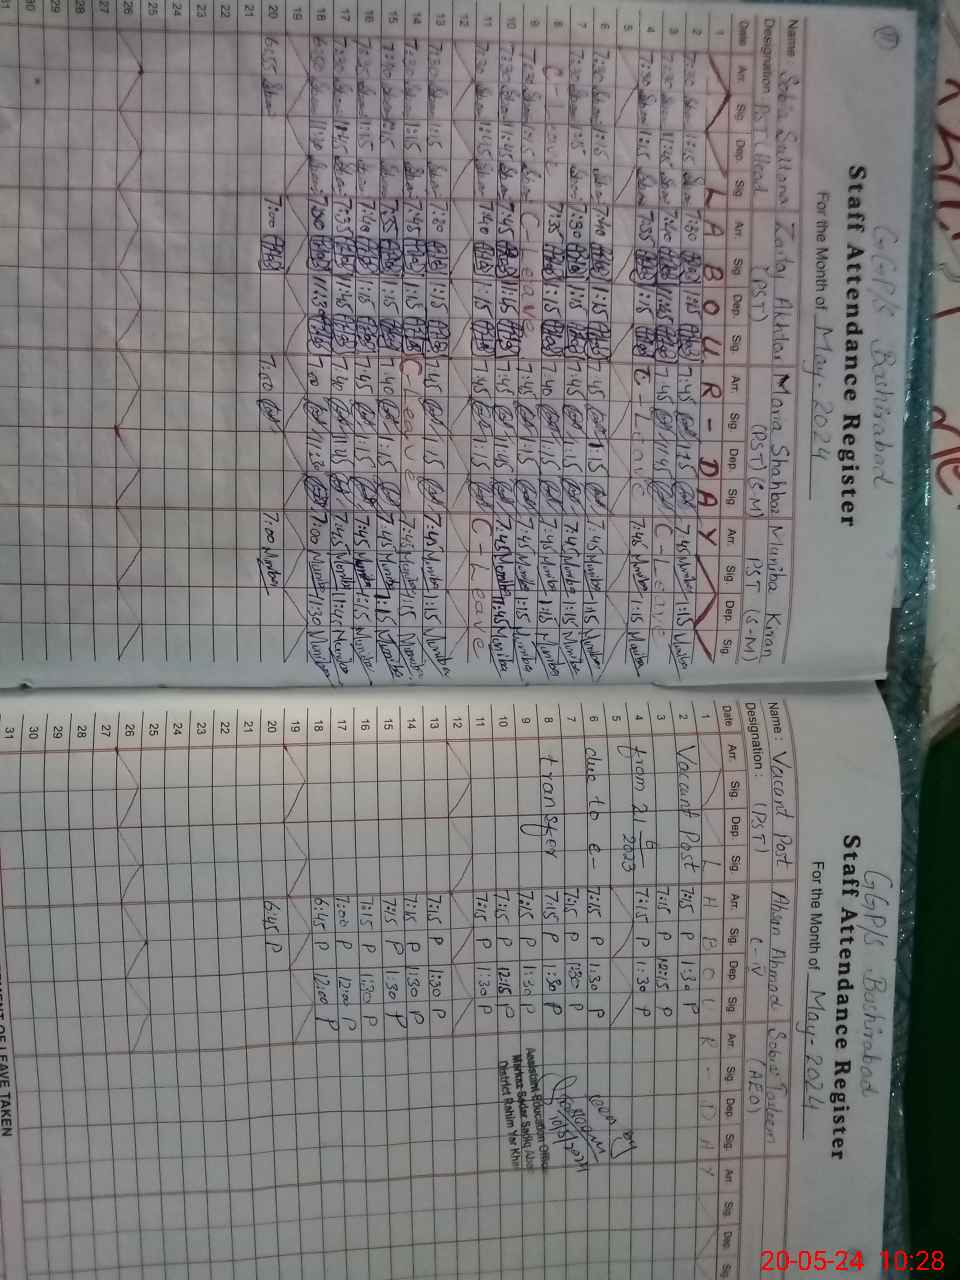 GGP/S Bashirabad
Staff Attendance Register
For the Month of May-2024
Name: Sobia Sultana Zartaj Akhtar Maria Shahbaz Muniba Kiran
Designation PST (Head (PST) (PST) (S-M) PST (S-M)
Date Arr. Sig. Dep. Sig Arr. Sig Dep. Sig. Arr. Sig. Dep. Sig Arr. Sig. Dep. Sig.
1 L A B O U R - D A Y
2 7:30 1:15 7:30 1:15 7:45 1:15 7:45 Muniba 1:15 Muniba
3 7:30 11:45 7:40 11:45 7:45 11:45 C - Leave
4 7:30 1:15 7:35 1:15 C - Leave 7:45 Muniba 1:15 Muniba
5
6 7:30 1:15 7:40 1:15 7:45 1:15 7:45 Muniba 1:15 Muniba
7 7:30 1:15 7:30 1:15 7:45 1:15 7:45 Muniba 1:15 Muniba
8 C - Leave 7:35 1:15 7:40 1:15 7:45 Muniba 1:15 Muniba
9 7:30 1:15 C - Leave 7:45 1:15 7:45 Muniba 1:15 Muniba
10 7:30 11:45 7:45 11:45 7:45 11:45 7:45 Muniba 11:45 Muniba
11 7:30 11:45 7:40 1:15 7:45 1:15 C - Leave
12
13 7:30 1:15 7:30 1:15 7:45 1:15 7:45 Muniba 1:15 Muniba
14 7:30 1:15 7:45 1:15 C - Leave 7:45 Muniba 1:15 Muniba
15 7:30 1:15 7:35 1:15 7:40 1:15 7:45 Muniba 1:15 Muniba
16 7:35 1:15 7:40 1:15 7:45 1:15 7:45 Muniba 1:15 Muniba
17 7:30 11:45 7:35 11:45 7:40 11:45 7:45 Muniba 11:45 Muniba
18 6:50 11:30 7:00 11:30 7:00 11:30 7:00 Muniba 11:30 Muniba
19
20 6:55 7:00 7:00 7:00 Muniba
21
22
23
24
25
26
27
28
29
30
31
GGP/S Bashirabad
Staff Attendance Register
For the Month of May-2024
Name: Vacant Post Ahsan Ahmad Sobia Tasleem
Designation: (PST) C-iv (AEO)
Date Arr. Sig. Dep. Sig. Arr. Sig. Dep. Sig Arr. Sig Dep. Sig. Arr. Sig. Dep. Sig.
1 L A B O U R - D A Y
2 Vacant Post 7:15 P 1:30 P
3 7:15 P 12:15 P
4 from 21/6/2023 7:15 P 1:30 P
5
6 due to e- 7:15 P 1:30 P
7 7:15 P 1:30 P
8 transfer 7:15 P 1:30 P
9 7:15 P 1:30 P
10 7:15 P 12:15 P
11 7:15 P 1:30 P
12
13 7:15 P 1:30 P
14 7:15 P 1:30 P
15 7:15 P 1:30 P
16 7:15 P 1:30 P
17 7:00 P 12:00 P
18 6:45 P 12:00 P
19
20 6:45 P
21
22
23
24
25
26
27
28
29
30
31
10/5/2024
Assistant Education Officer
Markaz Sadar Sadiq Abad
District Rahim Yar Khan
MENT OF LEAVE TAKEN
20-05-24 10:28